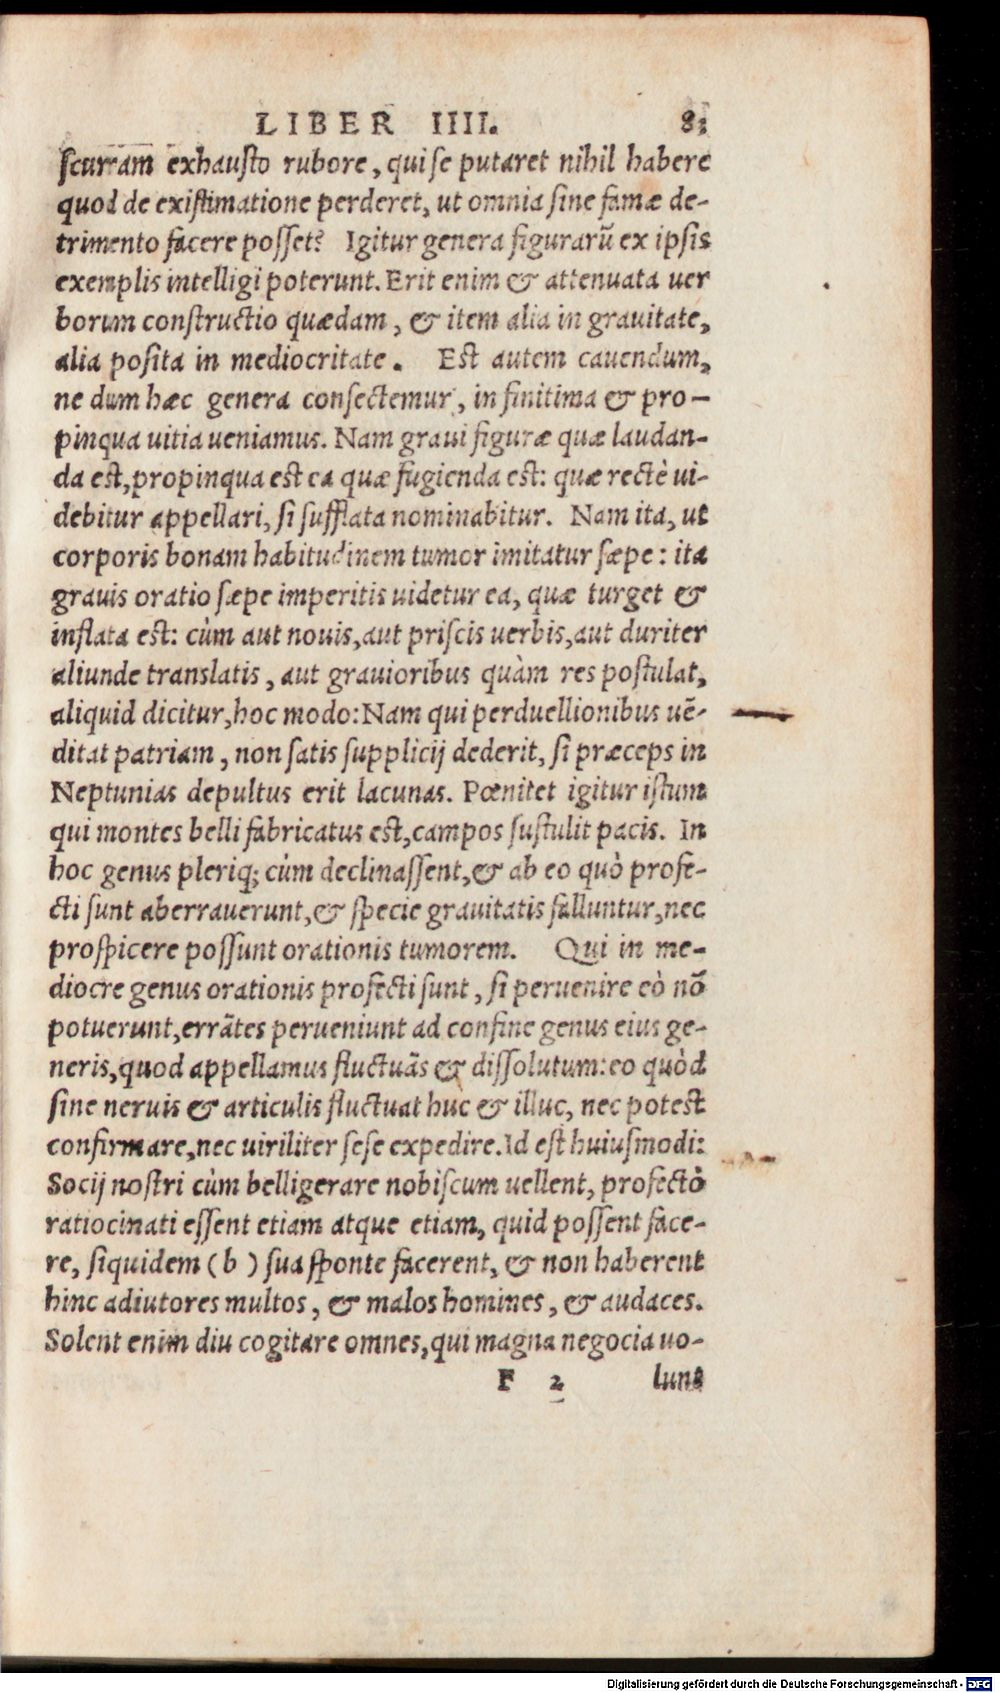 LIBER IIII. 83
scurram exhausto rubore, qui se putaret nihil habere
quod de existimatione perderet, ut omnia sine famæ de-
trimento facere posset? Igitur genera figurarũ ex ipsis
exemplis intelligi poterunt. Erit enim & attenuata uer
borum constructio quædam, & item alia in grauitate,
alia posita in mediocritate. Est autem cauendum,
ne dum hæc genera consectemur, in finitima & pro-
pinqua uitia ueniamus. Nam graui figuræ quæ laudan-
da est, propinqua est ea quæ fugienda est: quæ rectè ui-
debitur appellari, si sufflata nominabitur. Nam ita, ut
corporis bonam habitudinem tumor imitatur sæpe: ita
grauis oratio sæpe imperitis uidetur ea, quæ turget &
inflata est: cùm aut nouis, aut priscis uerbis, aut duriter
aliunde translatis, aut grauioribus quàm res postulat,
aliquid dicitur, hoc modo: Nam qui perduellionibus uẽ-
ditat patriam, non satis supplicij dederit, si præceps in
Neptunias depultus erit lacunas. Pœnitet igitur istum
qui montes belli fabricatus est, campos sustulit pacis. In
hoc genus pleriq; cùm declinassent, & ab eo quò profe-
cti sunt aberrauerunt, & specie grauitatis falluntur, nec
prospicere possunt orationis tumorem. Qui in me-
diocre genus orationis profecti sunt, si peruenire eò nõ
potuerunt, errãtes perueniunt ad confine genus eius ge-
neris, quod appellamus fluctuãs & dissolutum: eo quòd
sine neruis & articulis fluctuat huc & illuc, nec potest
confirmare, nec uiriliter sese expedire. Id est huiusmodi:
Socij nostri cùm belligerare nobiscum uellent, profectò
ratiocinati essent etiam atque etiam, quid possent face-
re, siquidem (b) sua sponte facerent, & non haberent
hinc adiutores multos, & malos homines, & audaces.
Solent enim diu cogitare omnes, qui magna negocia uo-
F 2 lunt
Digitalisierung gefördert durch die Deutsche Forschungsgemeinschaft - DFG